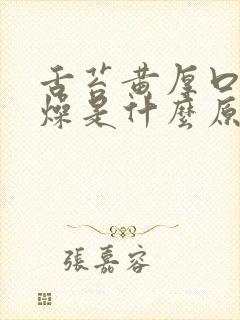 舌苔黄厚口
燥是什麼原
張嘉容